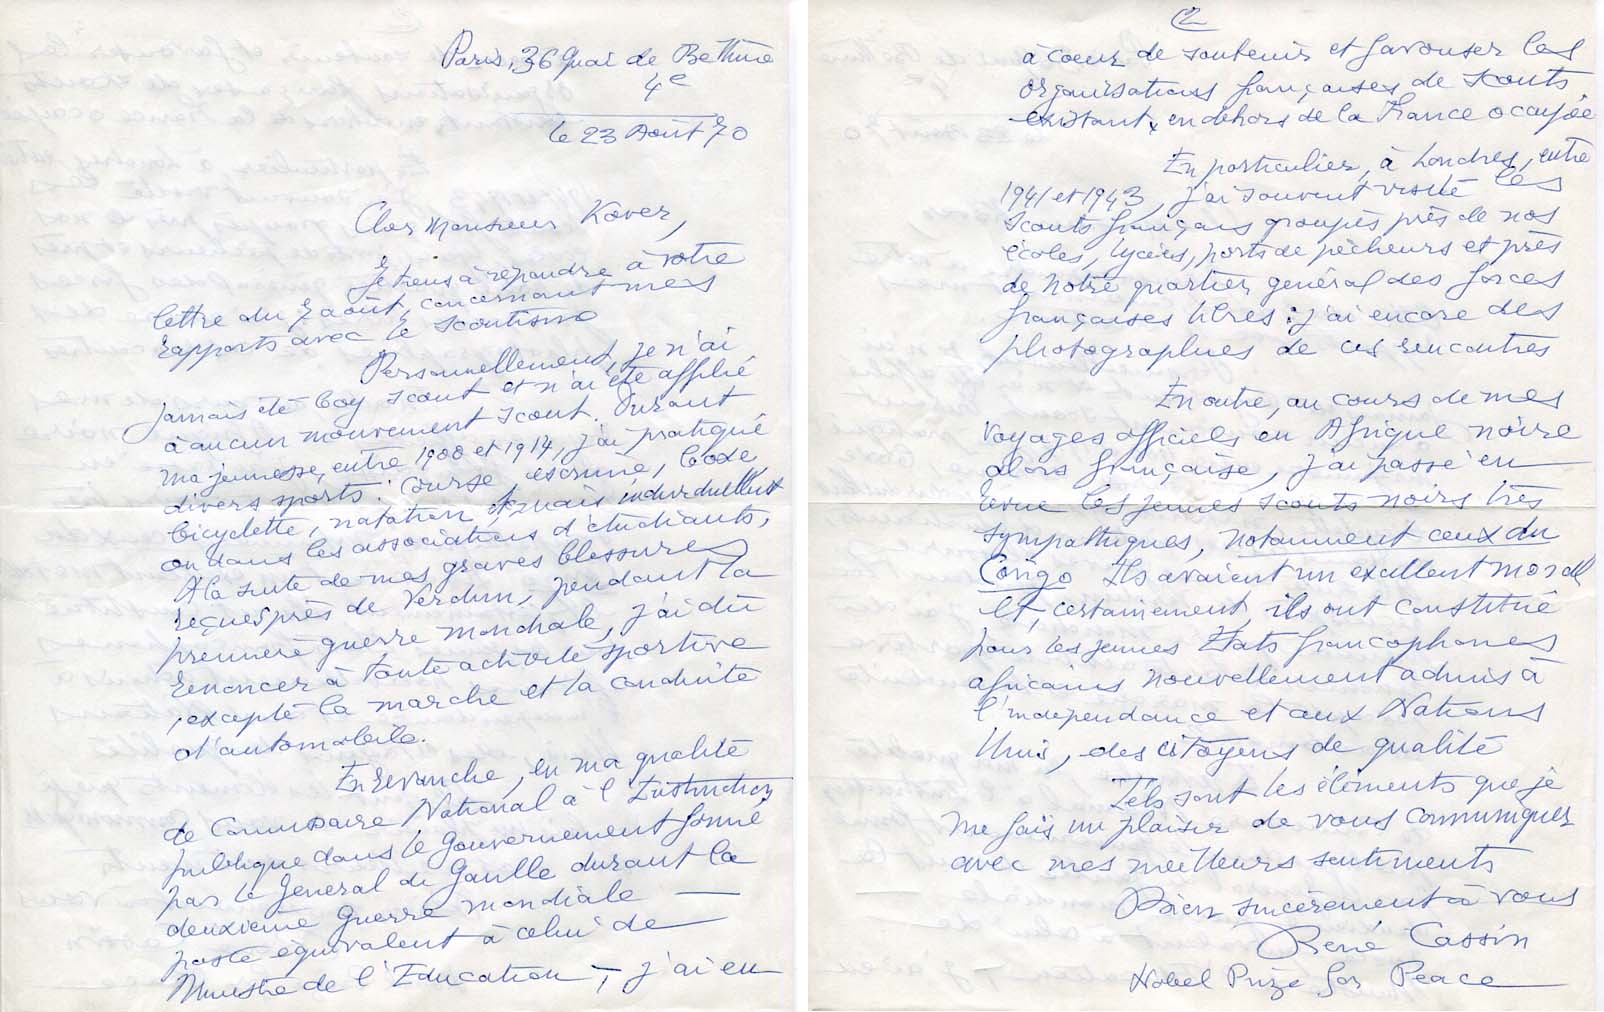 Paris, 36 Quai de Béthune
4e
le 23 Août 70
Cher Monsieur Kover,
Je tiens à répondre à votre
lettre du 7 août, concernant mes
rapports avec le scoutisme
Personnellement, je n'ai
jamais été boy scout et n'ai été affilié
à aucun mouvement scout. Durant
ma jeunesse, entre 1900 et 1914, j'ai pratiqué
divers sports : course, escrime, boxe
bicyclette, natation, mais individuellement
ou dans les associations d'étudiants,
A la suite de mes graves blessures
reçues près de Verdun, pendant la
première guerre mondiale, j'ai dû
renoncer à toute activité sportive
, excepté la marche et la conduite
d'automobile.
En revanche, en ma qualité
de Commissaire National à l'Instruction
publique dans le Gouvernement formé
par le Général de Gaulle durant la
deuxième Guerre mondiale —
poste équivalent à celui de
Ministre de l'Education —, j'ai eu
2
à coeur de soutenir et favoriser les
organisations françaises de scouts
existant, en dehors de la France occupée
En particulier, à Londres, entre
1941 et 1943, j'ai souvent visité les
scouts français groupés près de nos
écoles, lycées, ports de pêcheurs et près
de Notre quartier général des forces
françaises libres : j'ai encore des
photographies de ces rencontres
En outre, au cours de mes
voyages officiels en Afrique noire
alors française, j'ai passé en
revue les jeunes scouts noirs très
sympathiques, notamment ceux du
Congo Ils avaient un excellent moral
Et, certainement, ils ont constitué
pour les jeunes Etats francophones
africains nouvellement admis à
l'indépendance et aux Nations
Unis, des citoyens de qualité
Tels sont les éléments que je
me fais un plaisir de vous communiquer
avec mes meilleurs sentiments
Bien sincèrement à vous
René Cassin
Nobel Prize for Peace